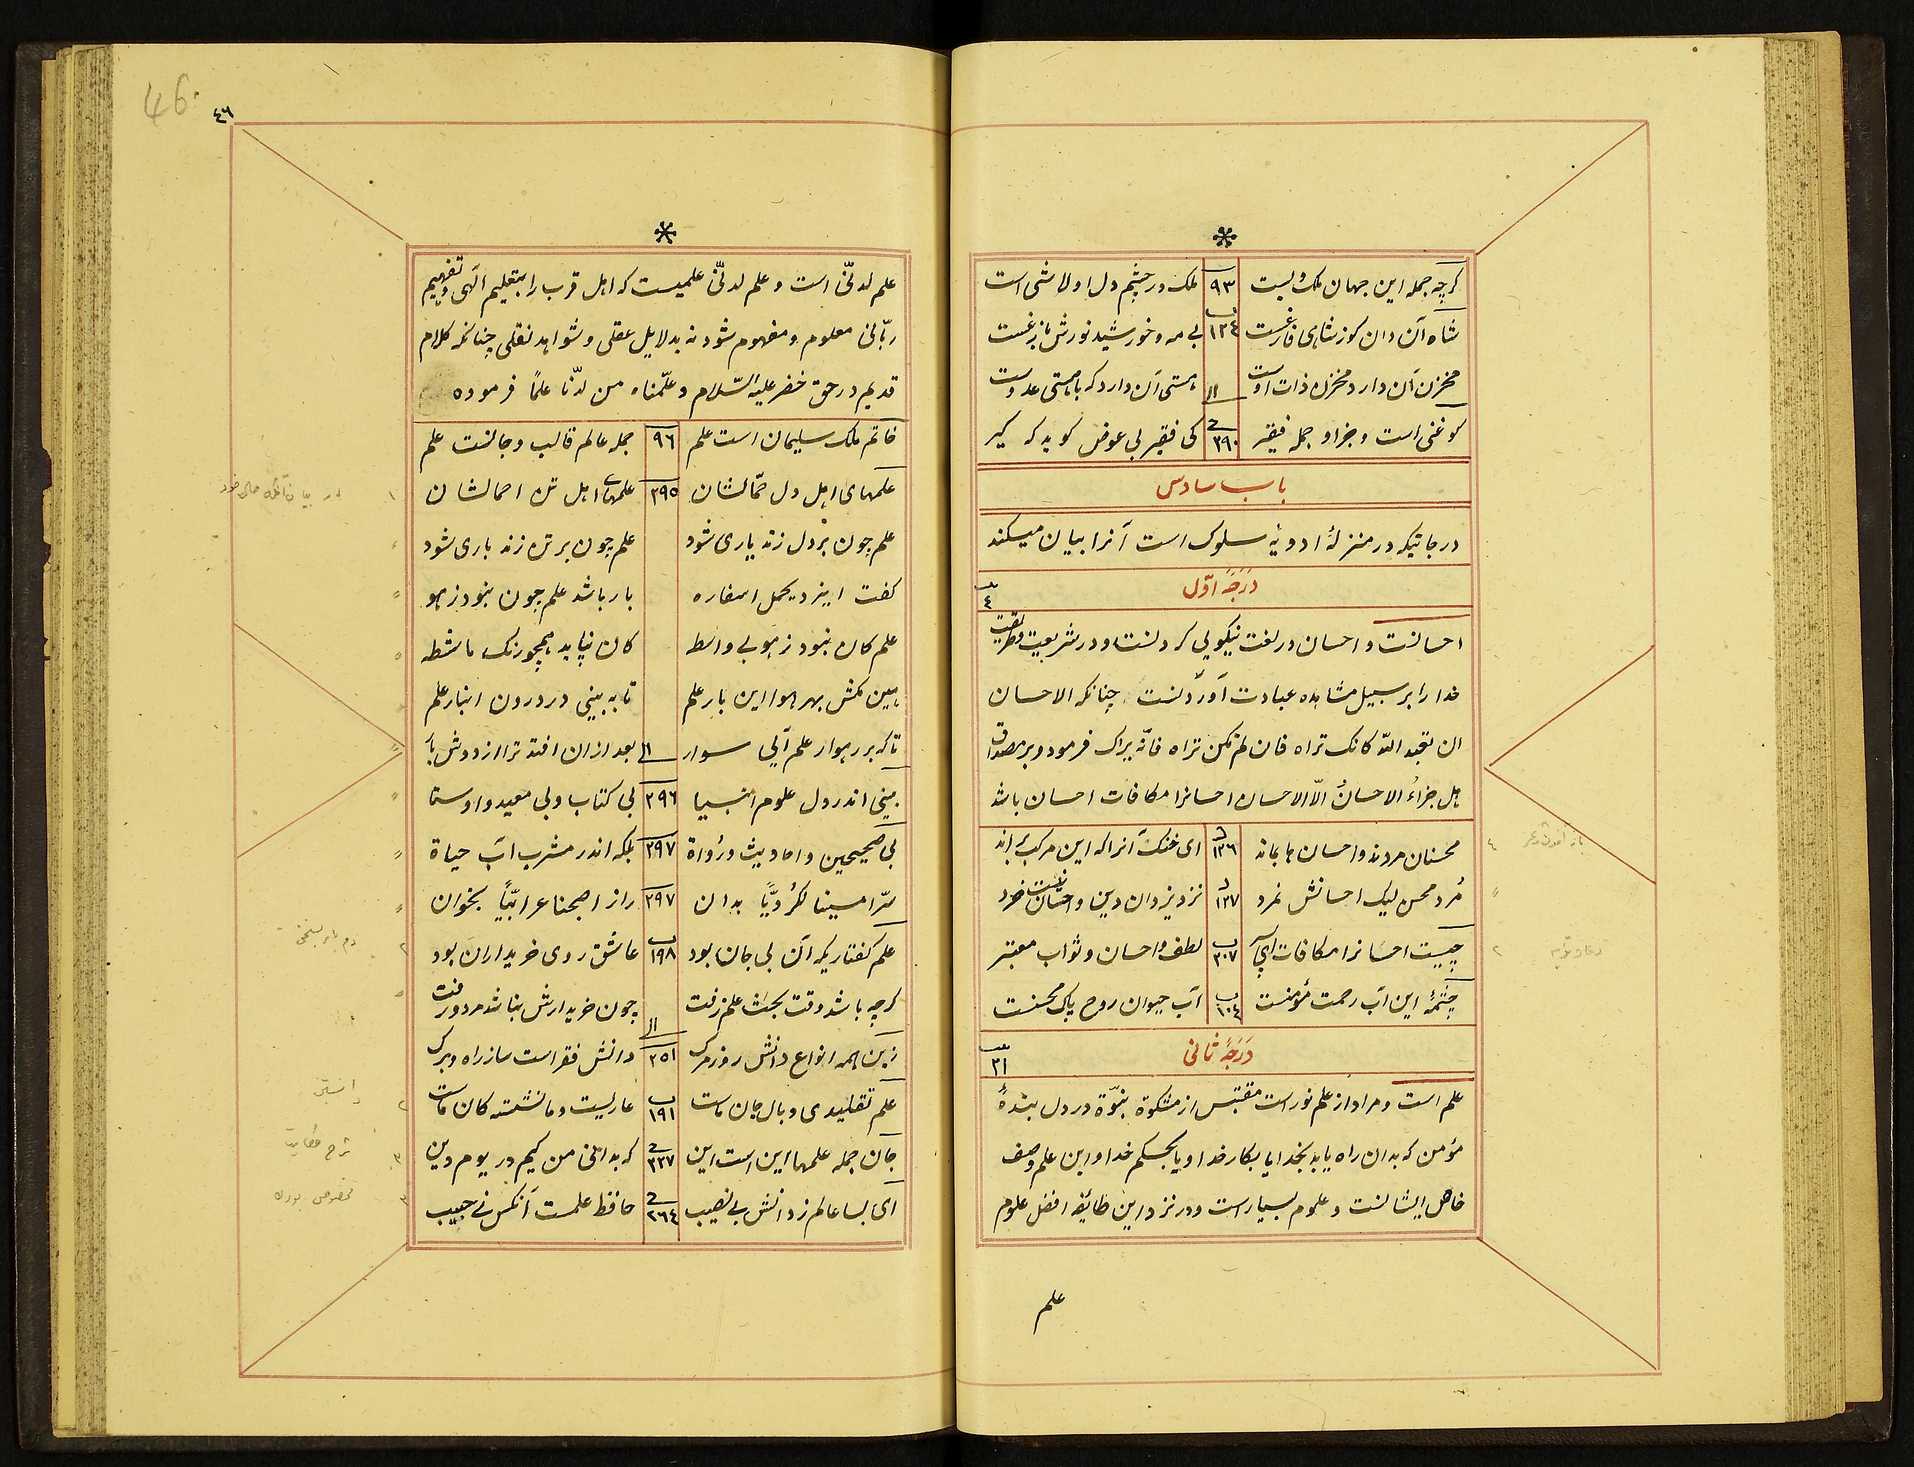 گرچه جمله این جهان ملک ویست ٩٣ ملک در چشم دل او لاشی است
شاه آن دان کوز شاهی فارغست ١٢٤ بی مه و خورشید نورش بازغست
مخزن آن دارد مخزن ذات اوست ١١ هستی آن دارد که با هستی عدوست
کو غنی است و جز او جمله فقیر ٢٩٠ کی فقیر بی عوض گوید که گیر
باب سادس
درجاتیکه در منزلهٔ ادویهٔ سلوک است آنرا بیان میکند
درجهٔ اول
٤
احسانست و احسان در لغت نیکویی کردنست و در شریعت و طریقت
خدا را بر سبیل مشاهده عبادت آوردنست چنانکه الاحسان
ان تعبد اللّه کانک تراه فان لم تکن تراه فانّه یراک فرمود و بر مصداق
هل جزاءُ الاحسانُ الّا الاحسان احسانرا مکافات احسان باشد
محسنان مردند و احسان ها بماند ١٣٦ ای خنک آنرا که این مرکب براند
مُرد محسن لیک احسانش نمرد ١٣٧ نزد یزدان دین و احسان نیست خرد
چیست احسانرا مکافات ای پسر ٣٠٧ لطف و احسان و ثواب معتبر
چشمهٔ این آب رحمت مؤمنست ١٠٤ آب حیوان روح پاک محسنست
درجهٔ ثانی
٣١
علم است و مراد از علم نوراست مقتبس از مشکوة نبوّة در دل بندهٔ
مؤمن که بدان راه یابد بخدا یا بکار خدا و یا بحکم خدا و این علم وصف
خاص ایشانست و علوم بسیار است و در نزد این طائفه افضل علوم
علم
46
٤٦
علم لدنّی است و علم لدنّی علمیست که اهل قرب را بتعلیم آلهی و تفهیم
ربّانی معلوم و مفهوم شود نه بدلایل عقلی و شواهد نقلی چنانکه کلام
قدیم در حق خضر علیه السّلام و علّمناه من لدنّا علمًا فرموده
خاتم ملک سلیمان است علم ٩٦ جمله عالم قالب و جانست علم
علمهای اهل دل حمّالشان ٢٩٥ علمهای اهل تن احمالشان
علم چون بر دل زند یاری شود علم چون بر تن زند باری شود
گفت ایزد یحمل اسفاره بار باشد علم چون نبود ز هو
علم کان نبود ز هو بی واسطه کان نپاید همچو رنگ ماشطه
هین مکش بهر هوا این بار علم تا به بینی در درون انبار علم
تا که بر رهوار علم آیی سوار ١١ بعد از ان افتد ترا از دوش بار
بینی اندر دل علوم انبیا ٢٩٦ بی کتاب و بی معید و اوستا
بی صحیحین و احادیث و رُواة ٢٩٧ بلکه اندر مشرب آب حیاة
سرّ امسینا لکُردیًّا بدان ٢٩٧ راز اصبحنا عرابیًّا بخوان
علم گفتاریکه آن بی جان بود ١٩٨ عاشق روی خریداران بود
گرچه باشد وقت بحث علم زفت ١١ چون خریدارش نباشد مرد و رفت
زین همه انواع دانش روز مرگ ٢٥١ دانش فقر است ساز راه و برگ
علم تقلیدی وبال جان ماست ١٩١ عاریست و ما نشسته کان ماست
جان جمله علمها این است این ٢٣٧ که بدانی من کیم در یوم دین
ای بسا عالم ز دانش بی نصیب ٢٦٤ حافظ علمست آنکس نی حبیب